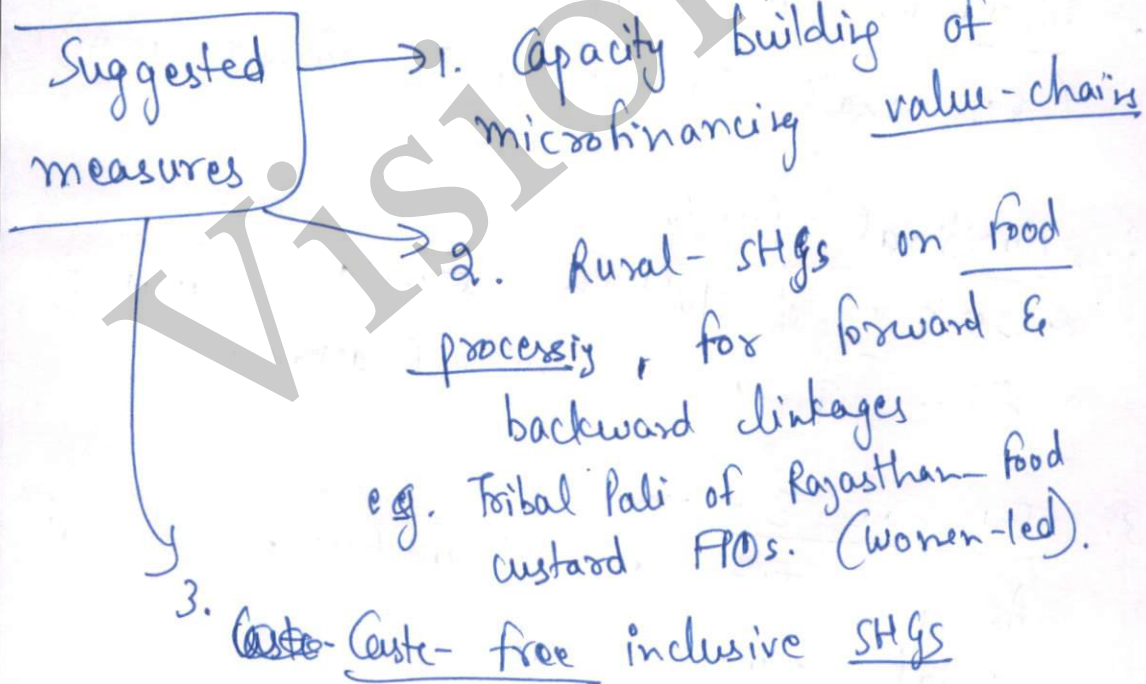 Suggested measures
→ 1. Capacity building of
microfinancing value-chains
→ 2. Rural- SHGs on food
processig, for forward &
backward linkages
eg. Tribal Pali of Rajasthan food
custard FPOs. (women-led).
3. Caste- free inclusive SHGs
Vision